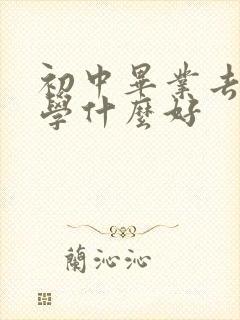 初中畢業去
學什麼好
蘭沁沁